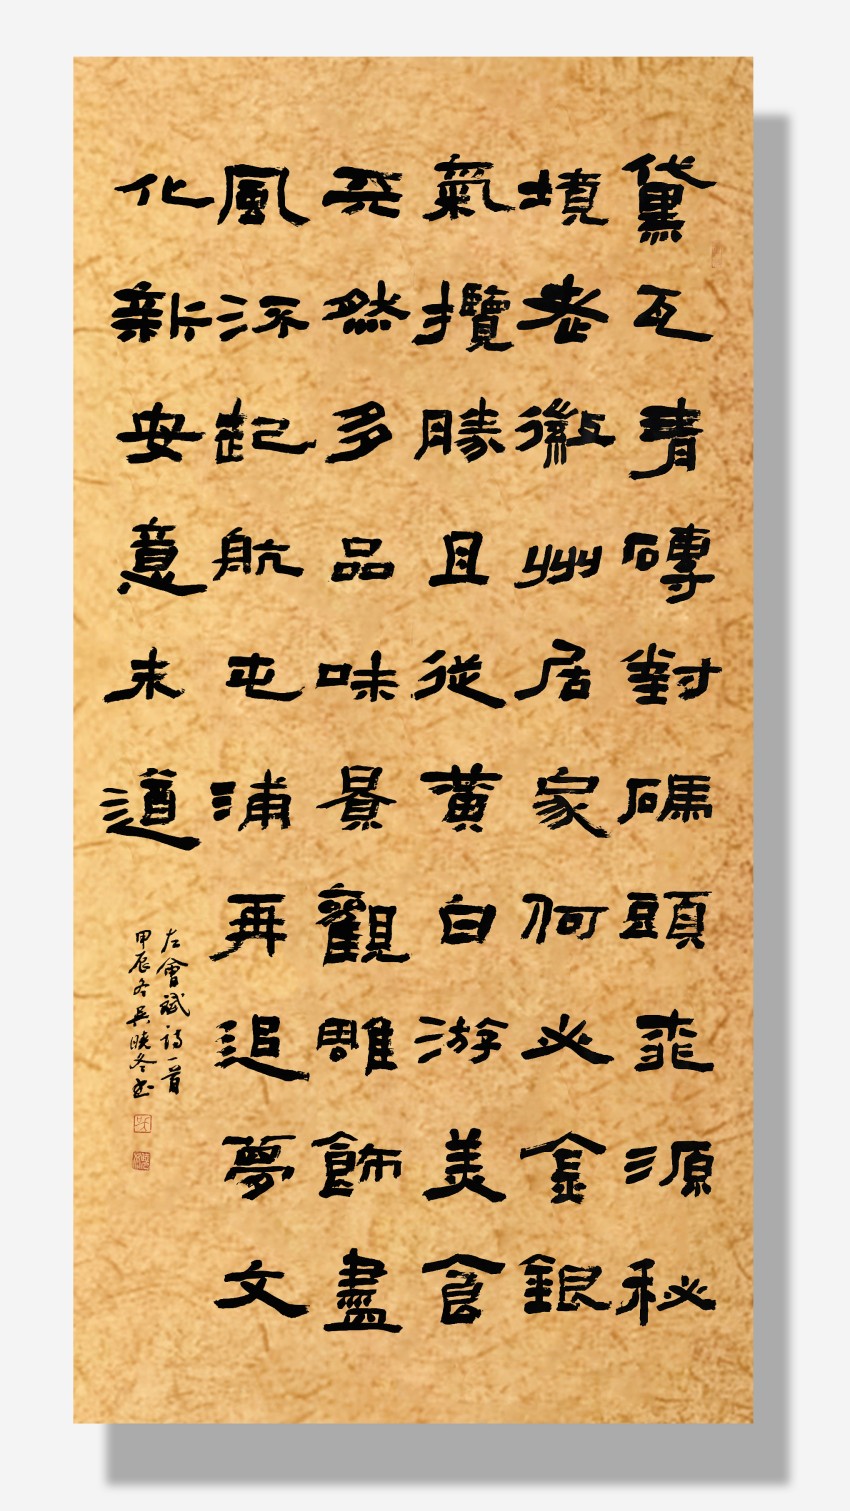 黛瓦青磚對碼頭桃源秘
境老徽州居家何必金銀
氣攬勝且從黃白游美食
天然多品味景觀雕飾盡
風流起航屯浦再追夢文
化新安意未遒
左會斌詩一首
甲辰冬吳曉冬书